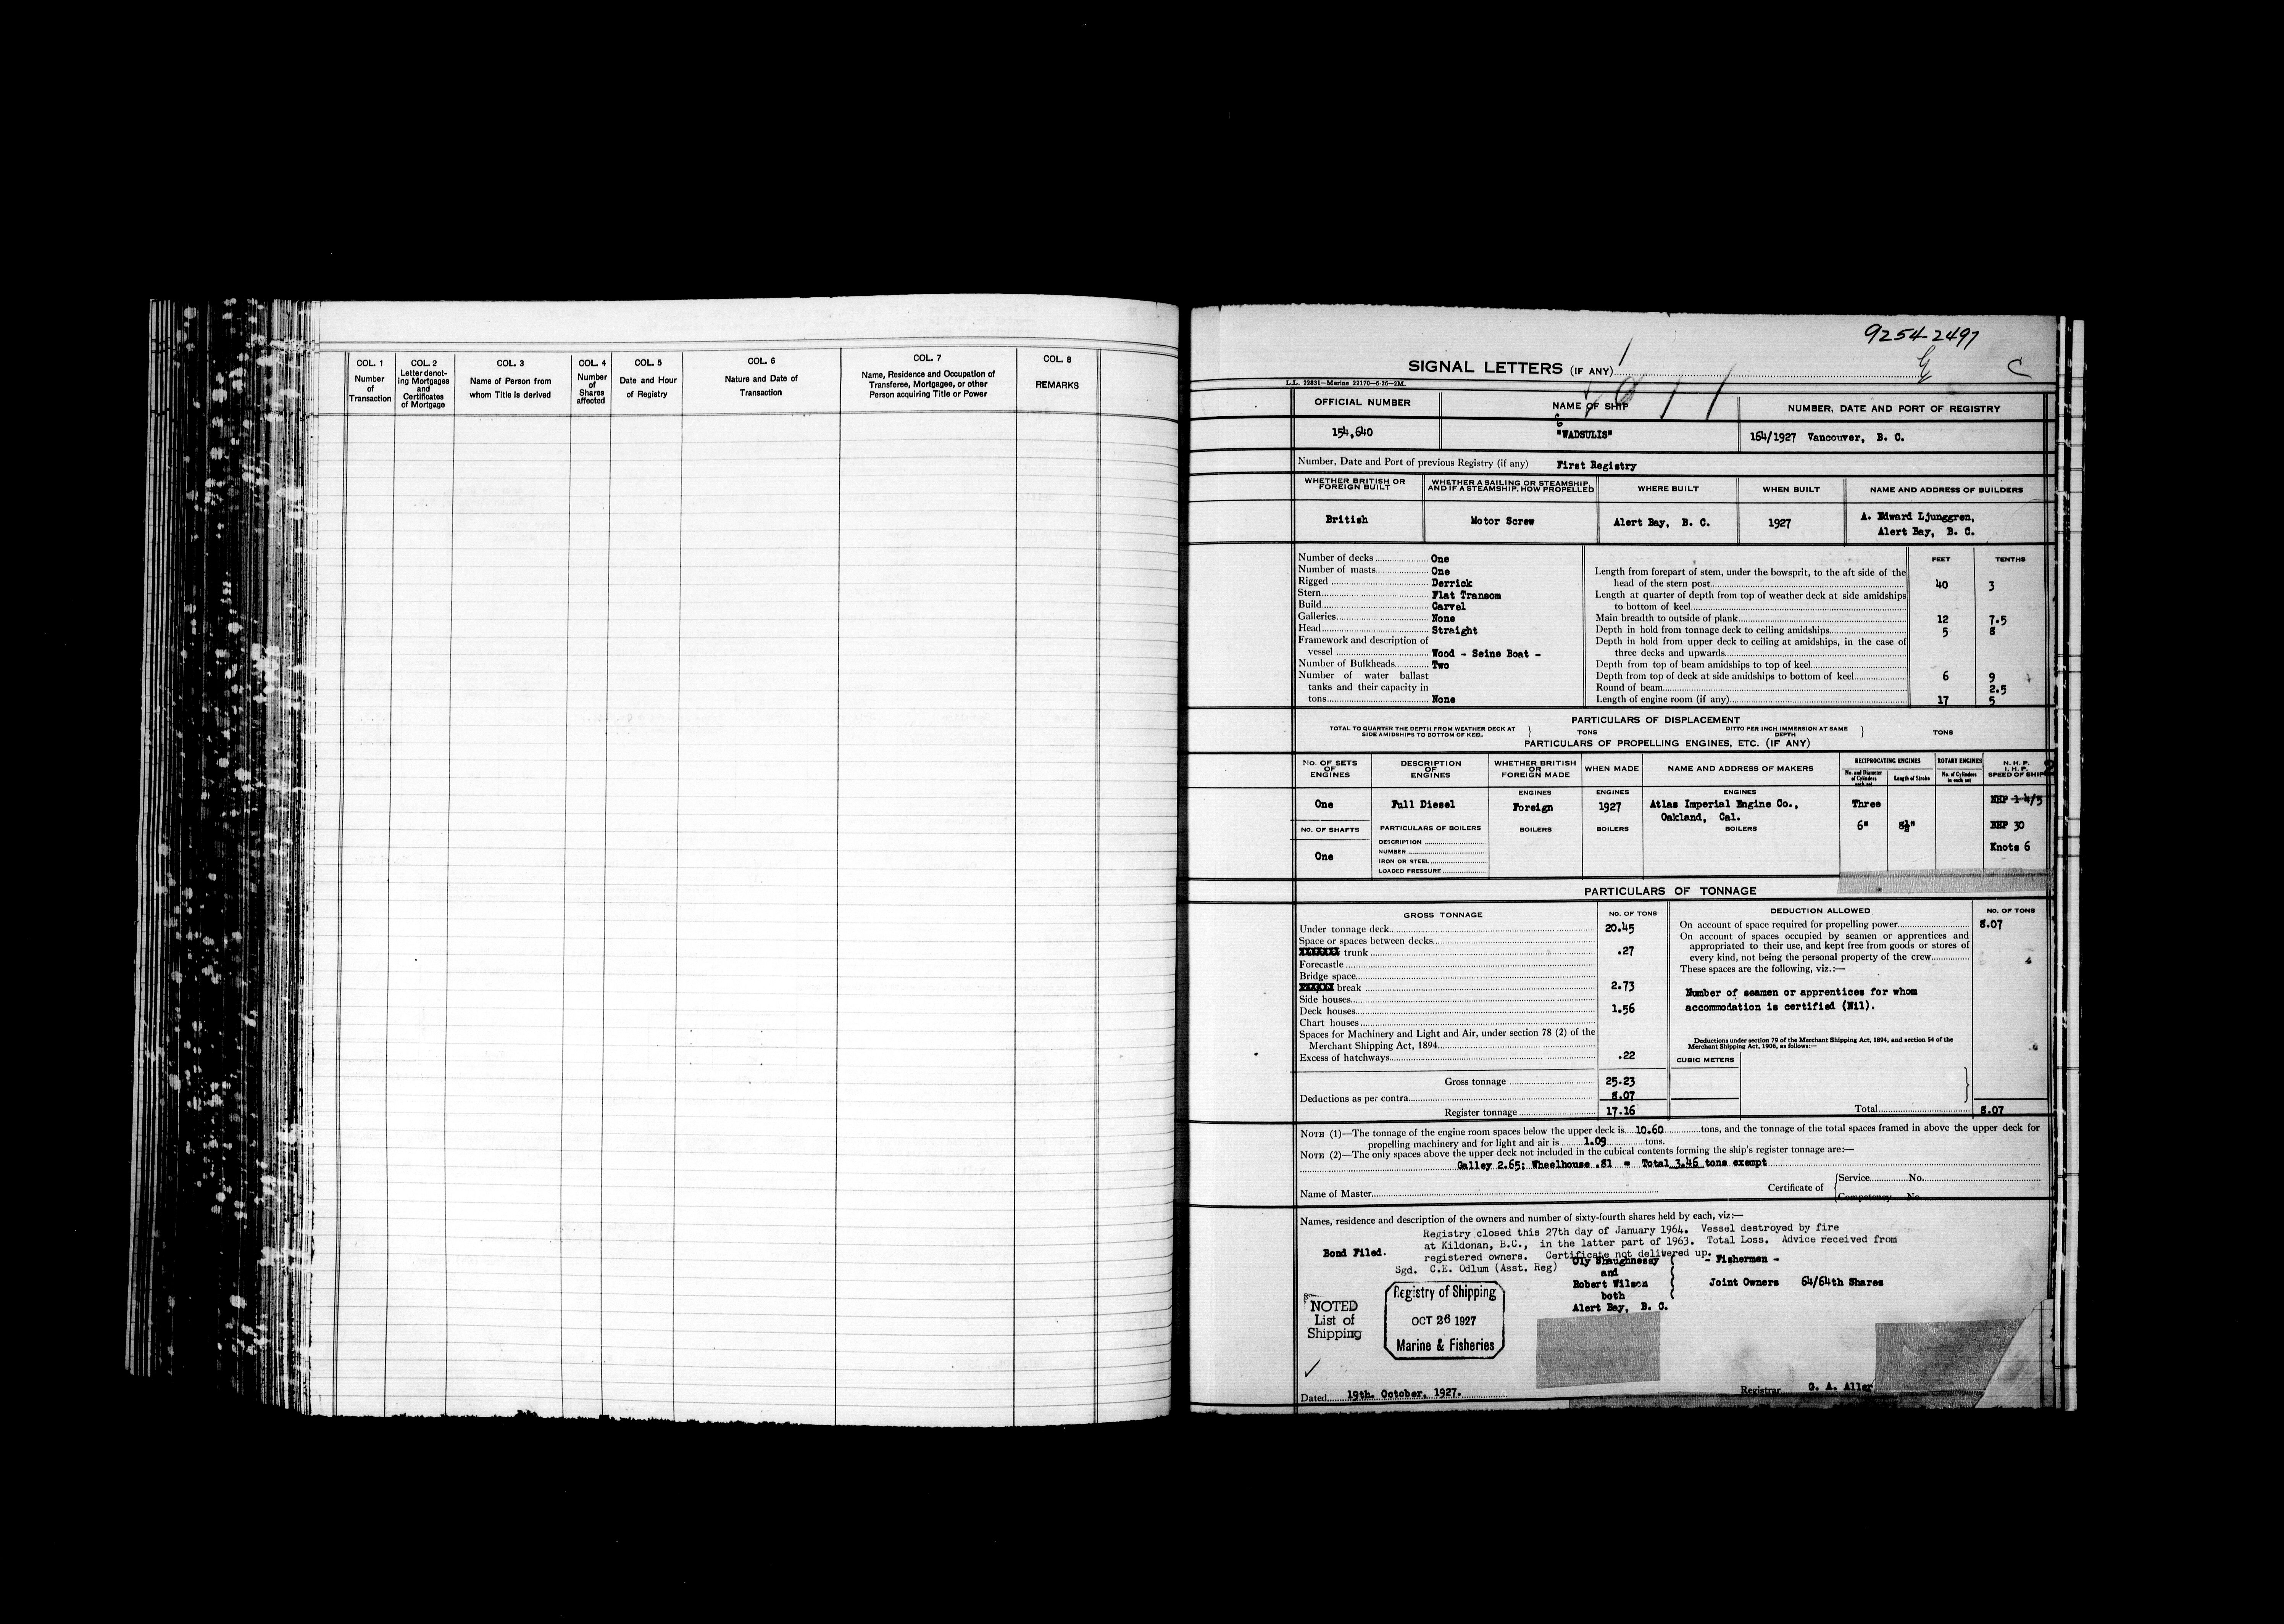 COL. 1
Number
of
Transaction
COL. 2
Letter denot-
ing Mortgages
and
Certificates
of Mortgage
COL. 3
Name of Person from
whom Title is derived
COL. 4
Number
of
Shares
affected
COL. 5
Date and Hour
of Registry
COL. 6
Nature and Date of
Transaction
COL. 7
Name, Residence and Occupation of
Transferee, Mortgagee, or other
Person acquiring Title or Power
COL. 8
REMARKS
9254-2497
SIGNAL LETTERS (IF ANY)
C
L.L. 22831—Marine 22170—6-26—2M.
OFFICIAL NUMBER
NAME OF SHIP
NUMBER, DATE AND PORT OF REGISTRY
154,640
"WADSULIS"
164/1927 Vancouver, B. C.
Number, Date and Port of previous Registry (if any) First Registry
WHETHER BRITISH OR
FOREIGN BUILT
WHETHER A SAILING OR STEAMSHIP,
AND IF A STEAMSHIP, HOW PROPELLED
WHERE BUILT
WHEN BUILT
NAME AND ADDRESS OF BUILDERS
British
Motor Screw
Alert Bay, B. C.
1927
A. Edward Ljunggren,
Alert Bay, B. C.
Number of decks One
Number of masts One
Rigged Derrick
Stern Flat Transom
Build Carvel
Galleries None
Head Straight
Framework and description of
vessel Wood - Seine Boat -
Number of Bulkheads Two
Number of water ballast
tanks and their capacity in
tons None
FEET TENTHS
Length from forepart of stem, under the bowsprit, to the aft side of the
head of the stern post 40 3
Length at quarter of depth from top of weather deck at side amidships
to bottom of keel
Main breadth to outside of plank 12 7.5
Depth in hold from tonnage deck to ceiling amidships 5 8
Depth in hold from upper deck to ceiling at amidships, in the case of
three decks and upwards
Depth from top of beam amidships to top of keel
Depth from top of deck at side amidships to bottom of keel 6 9
Round of beam 2.5
Length of engine room (if any) 17 5
PARTICULARS OF DISPLACEMENT
TOTAL TO QUARTER THE DEPTH FROM WEATHER DECK AT
SIDE AMIDSHIPS TO BOTTOM OF KEEL
TONS
DITTO PER INCH IMMERSION AT SAME
DEPTH
TONS
PARTICULARS OF PROPELLING ENGINES, ETC. (IF ANY)
NO. OF SETS
OF
ENGINES
DESCRIPTION
OF
ENGINES
WHETHER BRITISH
OR
FOREIGN MADE
WHEN MADE
NAME AND ADDRESS OF MAKERS
RECIPROCATING ENGINES
No. and Diameter
of Cylinders
each set
Length of Stroke
ROTARY ENGINES
No. of Cylinders
in each set
N. H. P.
I. H. P.
SPEED OF SHIP
ENGINES
ENGINES
ENGINES
One
Full Diesel
Foreign
1927
Atlas Imperial Engine Co.,
Oakland, Cal.
Three
NHP 1 4/5
NO. OF SHAFTS
PARTICULARS OF BOILERS
BOILERS
BOILERS
BOILERS
6"
8½"
BHP 30
One
DESCRIPTION
NUMBER
IRON OR STEEL
LOADED PRESSURE
Knots 6
PARTICULARS OF TONNAGE
GROSS TONNAGE
NO. OF TONS
Under tonnage deck 20.45
Space or spaces between decks
trunk .27
Forecastle
Bridge space
break 2.73
Side houses
Deck houses 1.56
Chart houses
Spaces for Machinery and Light and Air, under section 78 (2) of the
Merchant Shipping Act, 1894
Excess of hatchways .22
Gross tonnage 25.23
Deductions as per contra 8.07
Register tonnage 17.16
DEDUCTION ALLOWED
NO. OF TONS
On account of space required for propelling power 8.07
On account of spaces occupied by seamen or apprentices and
appropriated to their use, and kept free from goods or stores of
every kind, not being the personal property of the crew
These spaces are the following, viz.:—
Number of seamen or apprentices for whom
accommodation is certified (Nil).
Deductions under section 79 of the Merchant Shipping Act, 1894, and section 54 of the
Merchant Shipping Act, 1906, as follows:—
CUBIC METERS
Total 8.07
NOTE (1)—The tonnage of the engine room spaces below the upper deck is 10.60 tons, and the tonnage of the total spaces framed in above the upper deck for
propelling machinery and for light and air is 1.09 tons.
NOTE (2)—The only spaces above the upper deck not included in the cubical contents forming the ship's register tonnage are:—
Galley 2.65; Wheelhouse .81 = Total 3.46 tons exempt
Name of Master
Certificate of
Service No.
Competency No.
Names, residence and description of the owners and number of sixty-fourth shares held by each, viz:—
Registry closed this 27th day of January 1964. Vessel destroyed by fire
at Kildonan, B.C., in the latter part of 1963. Total Loss. Advice received from
registered owners. Certificate not delivered up.
Sgd. C.E. Odlum (Asst. Reg)
Bond Filed.
Oly Shaughnessy
and
Robert Wilson
both
Alert Bay, B. C.
- Fishermen -
Joint Owners 64/64th Shares
NOTED
List of
Shipping
Registry of Shipping
OCT 26 1927
Marine & Fisheries
Dated 19th. October. 1927.
Registrar